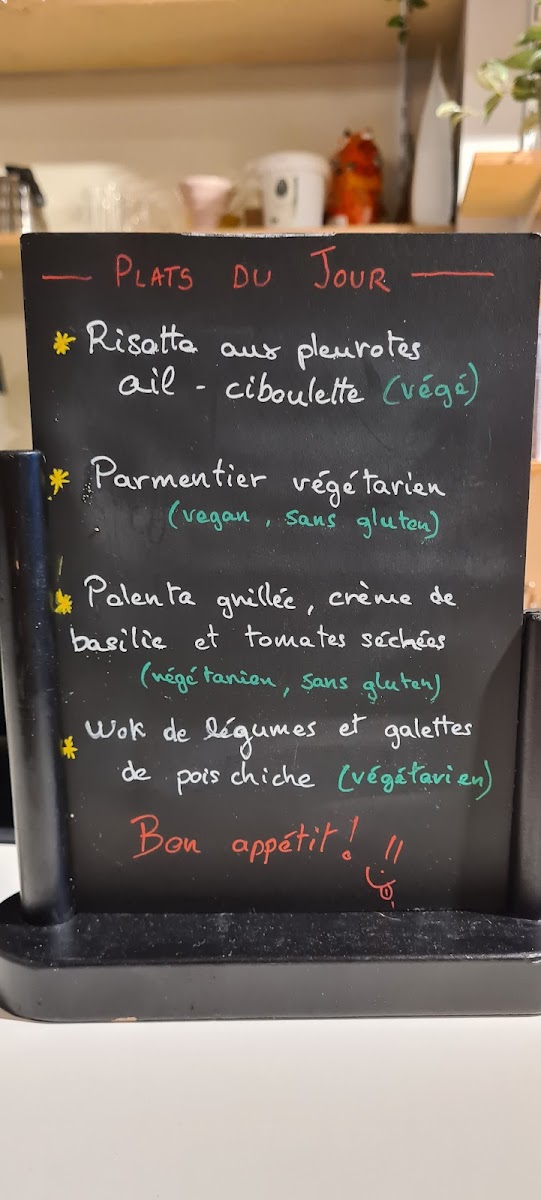 — PLATS DU JOUR —
* Risotto aux pleurotes
ail - ciboulette (végé)
* Parmentier végétarien
(vegan, sans gluten)
* Polenta grillée, crème de
basilic et tomates séchées
(végétarien, sans gluten)
* Wok de légumes et galettes
de pois chiche (végétarien)
Bon appétit!